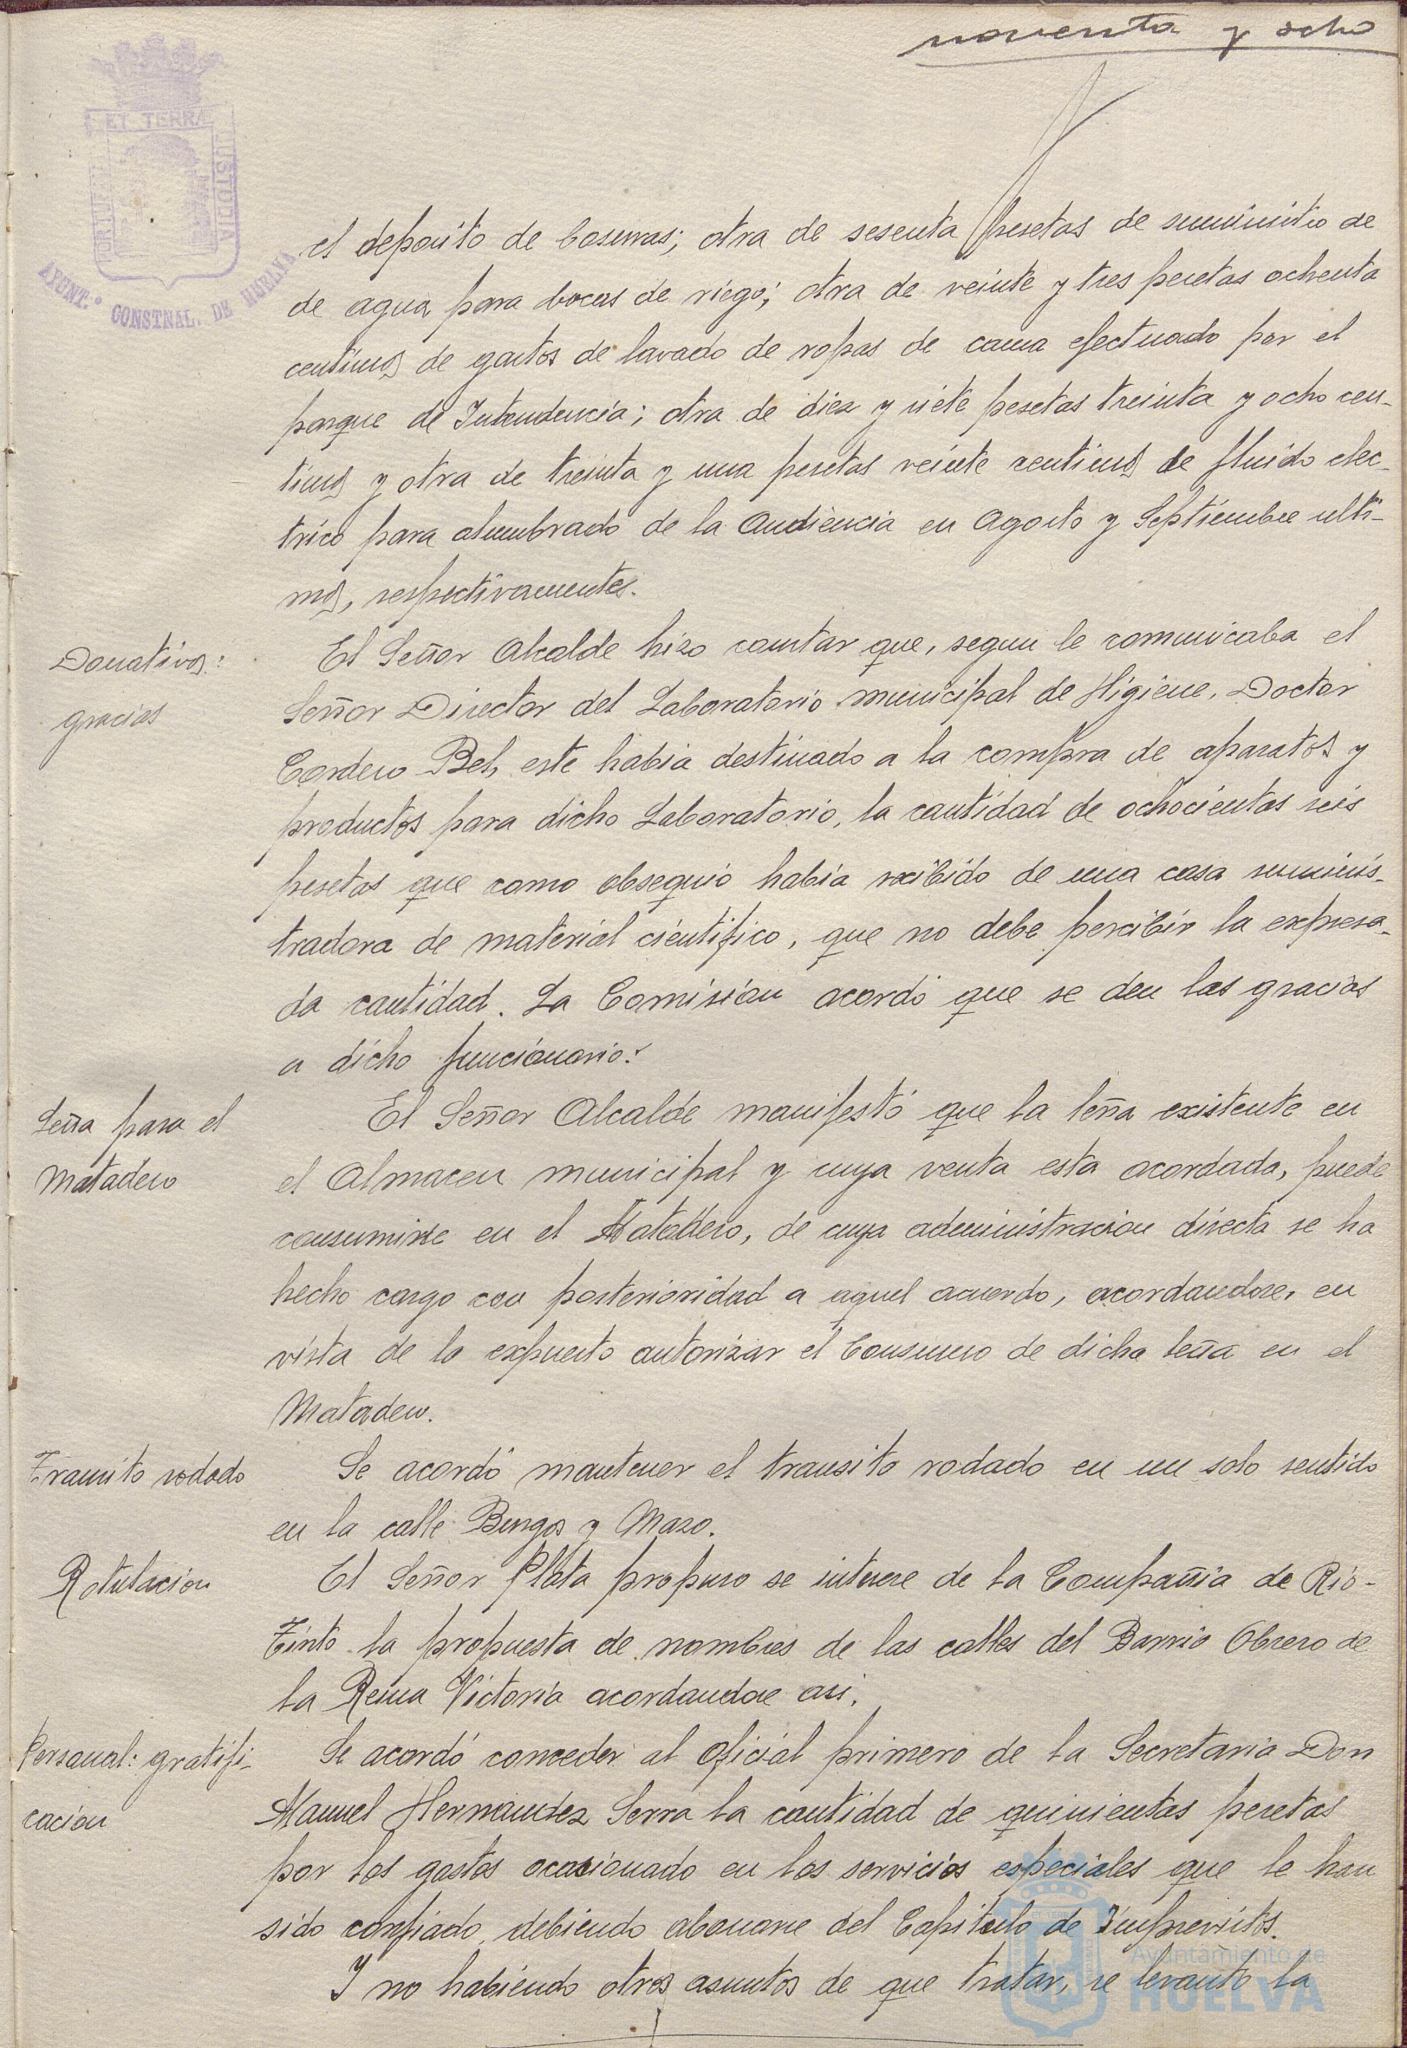 noventa y ocho
ET TERRÆ
CUSTODIA
PORTUS MARIS
AYUNT.º CONSTNAL. DE HUELVA
el deposito de basuras; otra de sesenta pesetas de suministro de
de agua para bocas de riego; otra de veinte y tres pesetas ochenta
centimos de gastos de lavado de ropas de cama efectuado por el
parque de Intendencia; otra de diez y siete pesetas treinta y ocho cen-
timos y otra de treinta y una pesetas veinte centimos de fluido elec-
trico para alumbrado de la Audiencia en Agosto y Septiembre ulti-
mos, respectivamentes.
Donativos:
gracias
El Señor Alcalde hizo constar que, segun le comunicaba el
Señor Director del Laboratorio municipal de Higiene, Doctor
Cordero Bel, este habia destinado a la compra de aparatos y
productos para dicho Laboratorio, la cantidad de ochocientas seis
pesetas que como obsequio habia recibido de una casa suminis-
tradora de material cientifico, que no debe percibir la expresa-
da cantidad. La Comisión acordó que se den las gracias
a dicho funcionario.
Leña para el
Matadero
El Señor Alcalde manifestó que la leña existente en
el Almacen municipal y cuya venta esta acordada, puede
consumirse en el Matadero, de cuya administracion directa se ha
hecho cargo con posterioridad a aquel acuerdo, acordandose, en
vista de lo expuesto autorizar el Consumo de dicha leña en el
Matadero.
Transito rodado
Se acordó mantener el transito rodado en un solo sentido
en la calle Burgos y Mazo.
Rotulacion
El Señor Plata propuso se interese de la Compañia de Rio-
Tinto la propuesta de nombres de las calles del Barrio Obrero de
la Reina Victoria acordandose asi.
Personal: gratifi-
cacion
Se acordó conceder al oficial primero de la Secretaria Don
Manuel Hernandez Serra la cantidad de quinientas pesetas
por los gastos ocasionado en los servicios especiales que le han
sido confiado, debiendo abonarse del Capitulo de Imprevistos.
Y no habiendo otros asuntos de que tratar, se levanto la
Ayuntamiento de
HUELVA